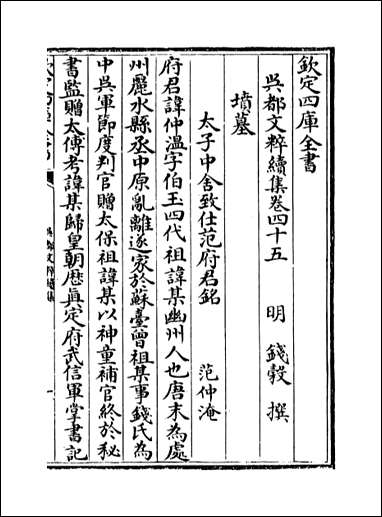 欽定四庫全書
吳都文粹續集卷四十五　明　錢穀　撰
墳墓
太子中舍致仕范府君銘　范仲淹
府君諱仲溫字伯玉四代祖諱某幽州人也唐末為處
州麗水縣丞中原亂離遂家於蘇臺曾祖某事錢氏為
中吳軍節度判官贈太保祖諱某以神童補官終於秘
書監贈太傅考諱某歸皇朝歴真定府武信軍掌書記